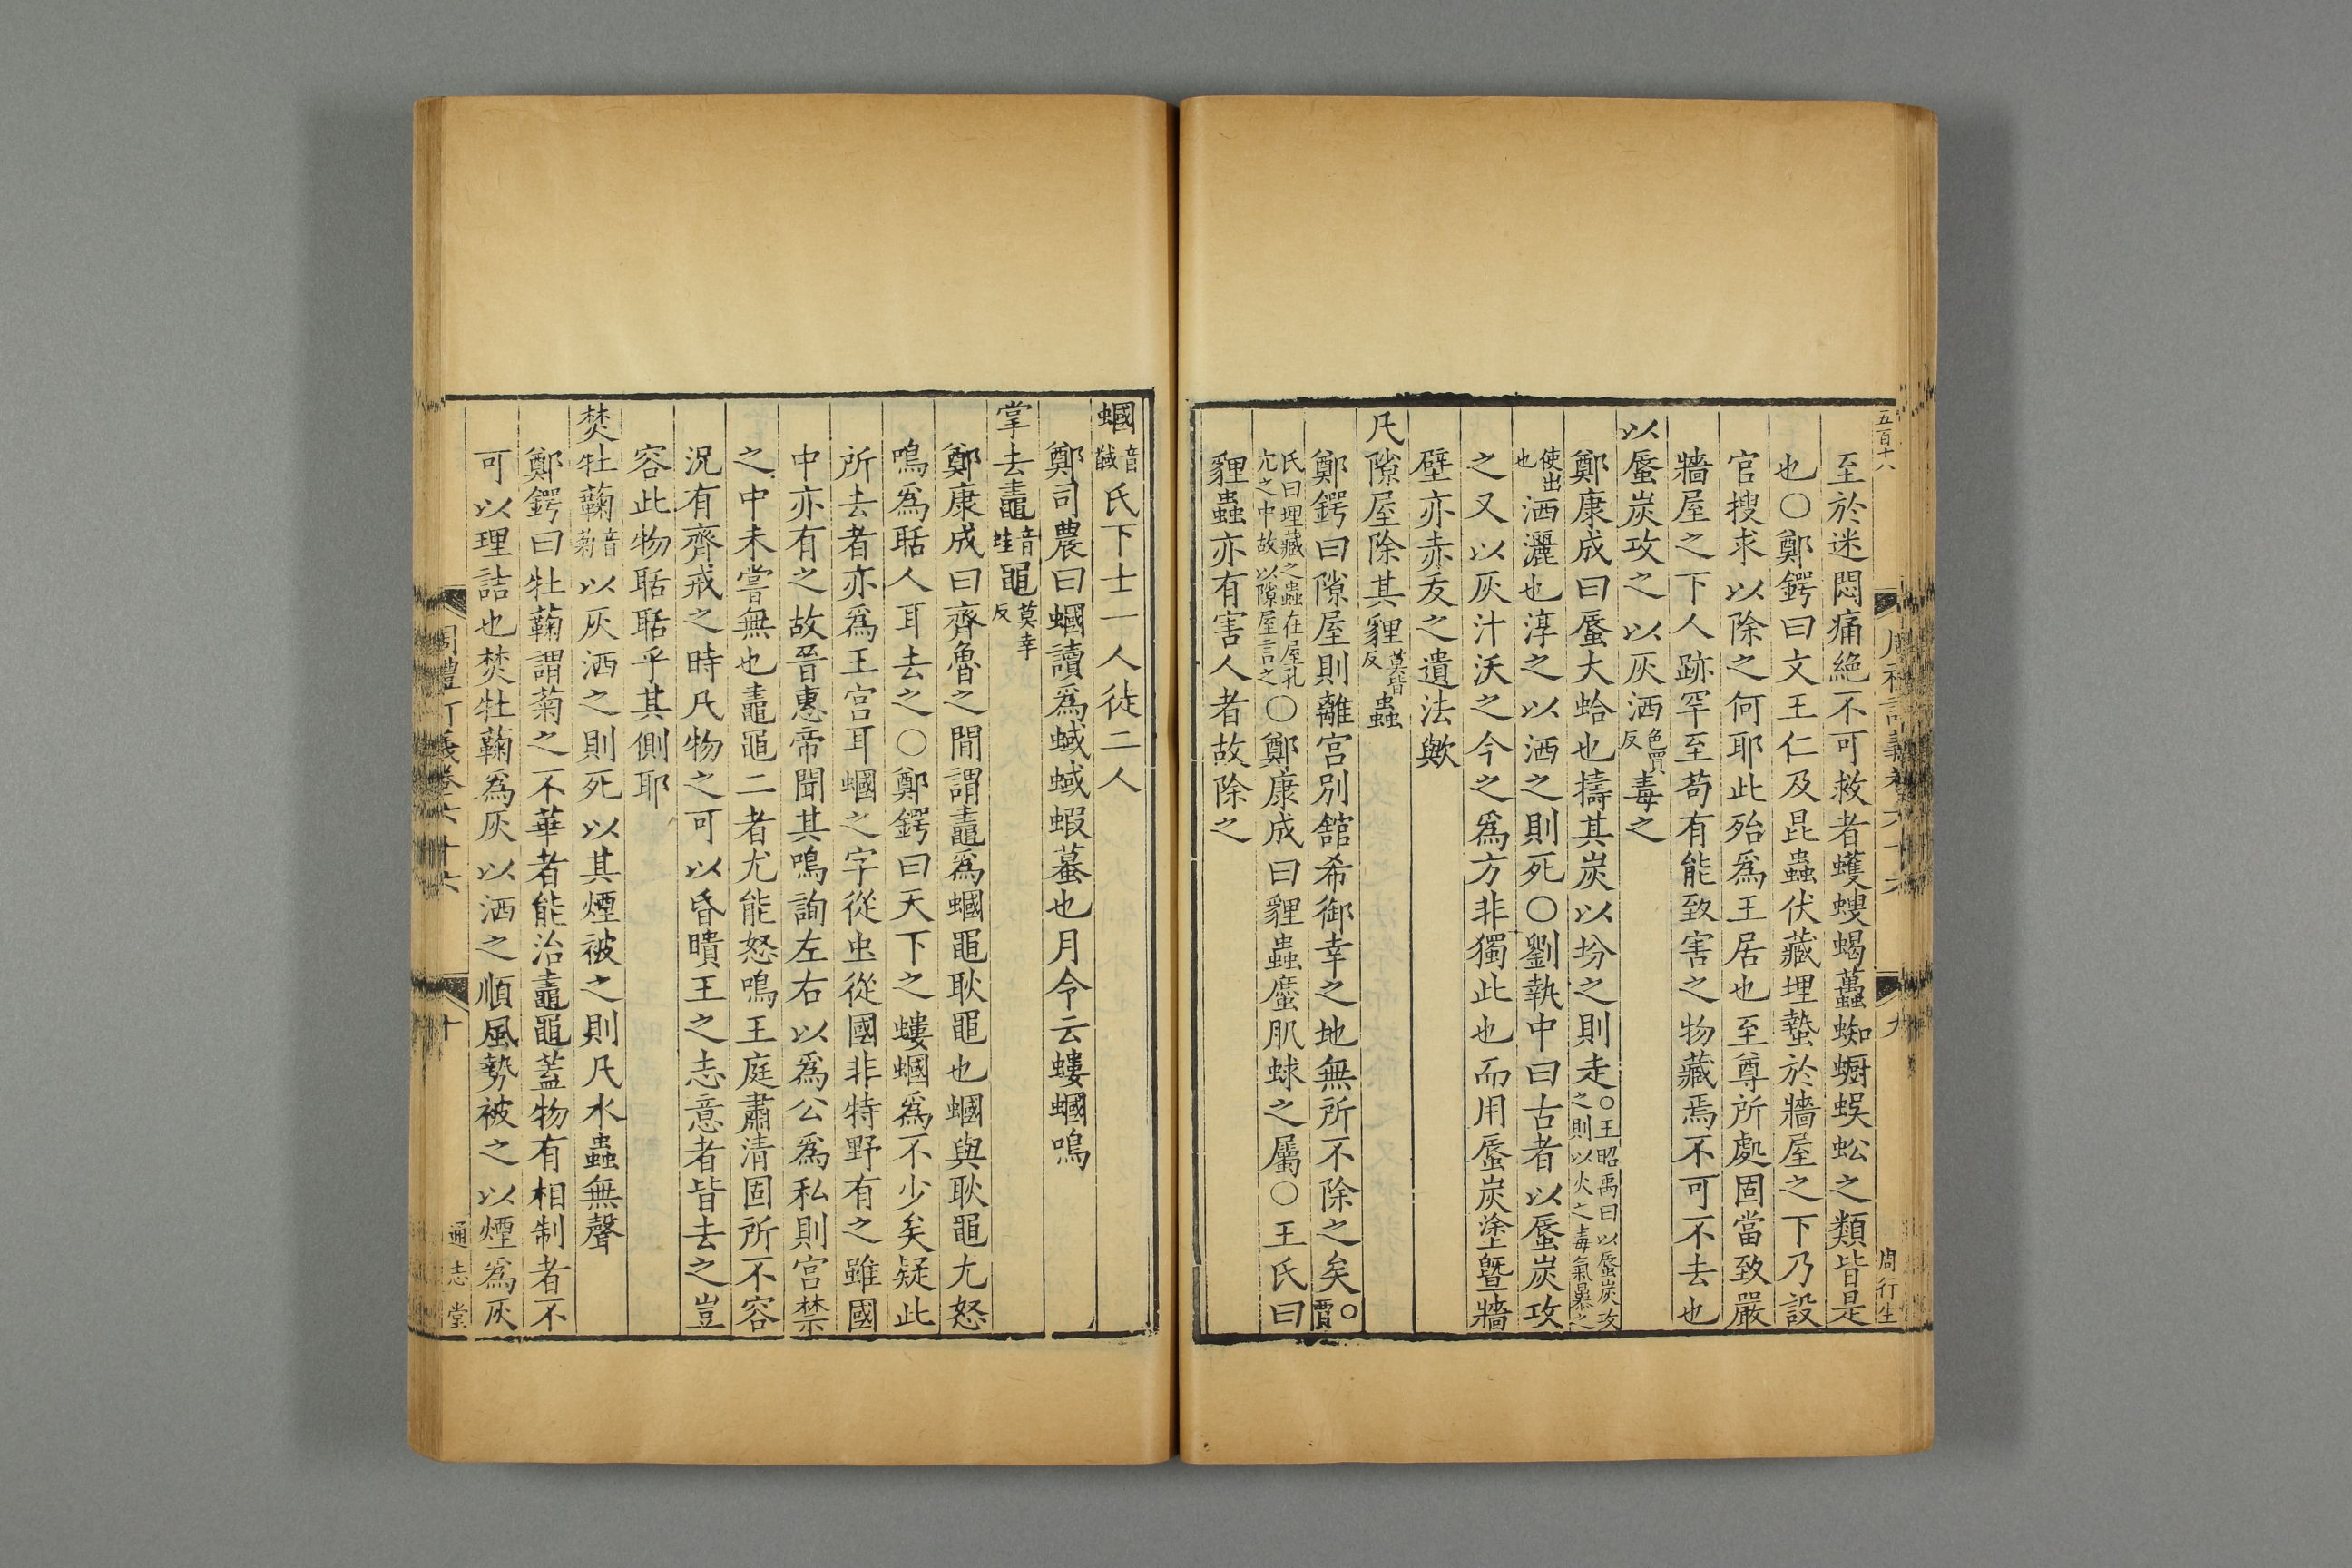 五百十八
至於迷悶痛絶不可救者蠼螋蝎蠆蜘蟵蜈蚣之類皆是
也〇鄭鍔曰文王仁及昆蟲伏藏埋蟄於牆屋之下乃設
官搜求以除之何耶此殆爲王居也至尊所處固當致嚴
牆屋之下人跡罕至苟有能致害之物藏焉不可不去也
以蜃炭攻之以灰洒色賈反毒之
鄭康成曰蜃大蛤也擣其炭以坋之則走〇王昭禹曰以蜃炭攻之則以火之毒氣暴之
使出也洒灑也淳之以洒之則死〇劉執中曰古者以蜃炭攻
之又以灰汁沃之今之爲方非獨此也而用蜃炭塗墍牆
壁亦赤犮之遺法歟
凡隙屋除其貍莫皆反蟲
鄭鍔曰隙屋則離宮別舘希御幸之地無所不除之矣〇賈
氏曰埋藏之蟲在屋孔穴之中故以隙屋言之〇鄭康成曰貍蟲䗪肌蛷之屬〇王氏曰
貍蟲亦有害人者故除之
周行生
九
蟈音馘氏下士一人徒二人
鄭司農曰蟈讀爲蜮蜮蝦蟇也月令云螻蟈鳴
掌去鼃音蛙黽莫幸反
鄭康成曰齊魯之閒謂鼃爲蟈黽耿黽也蟈與耿黽尤怒
鳴爲聒人耳去之〇鄭鍔曰天下之螻蟈爲不少矣疑此
所去者亦爲王宮耳蟈之字從虫從國非特野有之雖國
中亦有之故晉惠帝聞其鳴詢左右以爲公爲私則宮禁
之中未嘗無也鼃黽二者尤能怒鳴王庭肅清固所不容
況有齊戒之時凡物之可以昏瞶王之志意者皆去之豈
容此物聒聒乎其側耶
焚牡蘜音菊以灰洒之則死以其煙被之則凡水蟲無聲
鄭鍔曰牡蘜謂菊之不華者能治鼃黽蓋物有相制者不
可以理詰也焚牡蘜爲灰以洒之順風勢被之以煙爲灰
周禮訂義卷六十六
十
通志堂